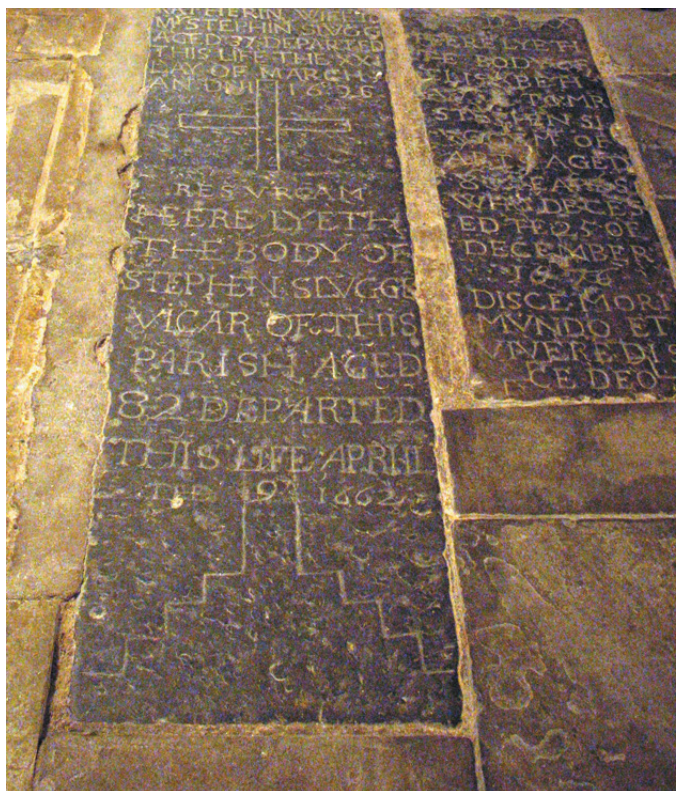 KATHERIN WIFE TO
Mʳ STEPHIN SLVGG
AGED 37 DEPARTED
THIS LIFE THE XXI
DAY OF MARCH
AN DNI 1625
RESVRGAM
HEERE LYETH
THE BODY OF
STEPHEN SLVGGE
VICAR OF THIS
PARISH AGED
82 DEPARTED
THIS LIFE APRIIL
THE 9 1662
HERE LYETH
THE BODY OF
MR
STEPHEN
OF
AGED
YEARES
WHE DECES
ED THE 25 OF
DECEMBER
DISCE MORI
MVNDO ET
VIVERE DIS
CE DEO